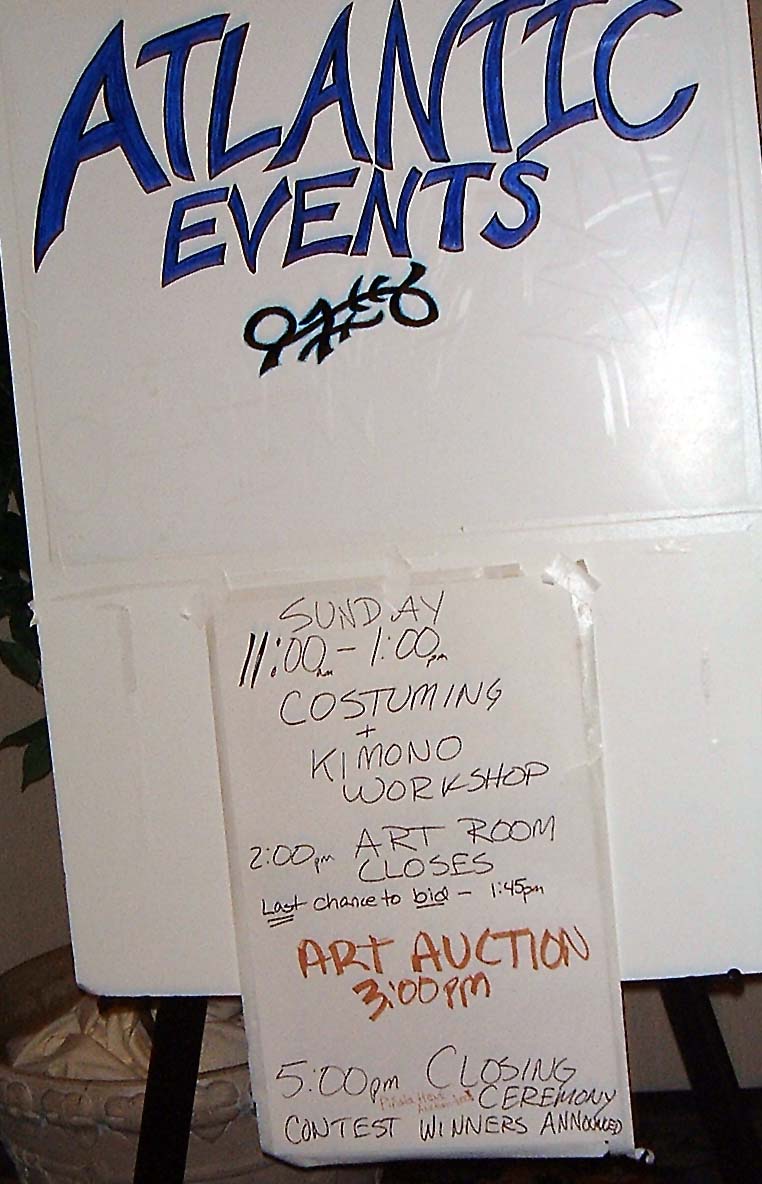 ATLANTIC
EVENTS
SUNDAY
11:00am - 1:00pm
COSTUMING
+
KIMONO
WORKSHOP
2:00pm ART ROOM
CLOSES
Last chance to bid - 1:45pm
ART AUCTION
3:00PM
5:00pm CLOSING
CEREMONY
CONTEST WINNERS ANNOUNCED